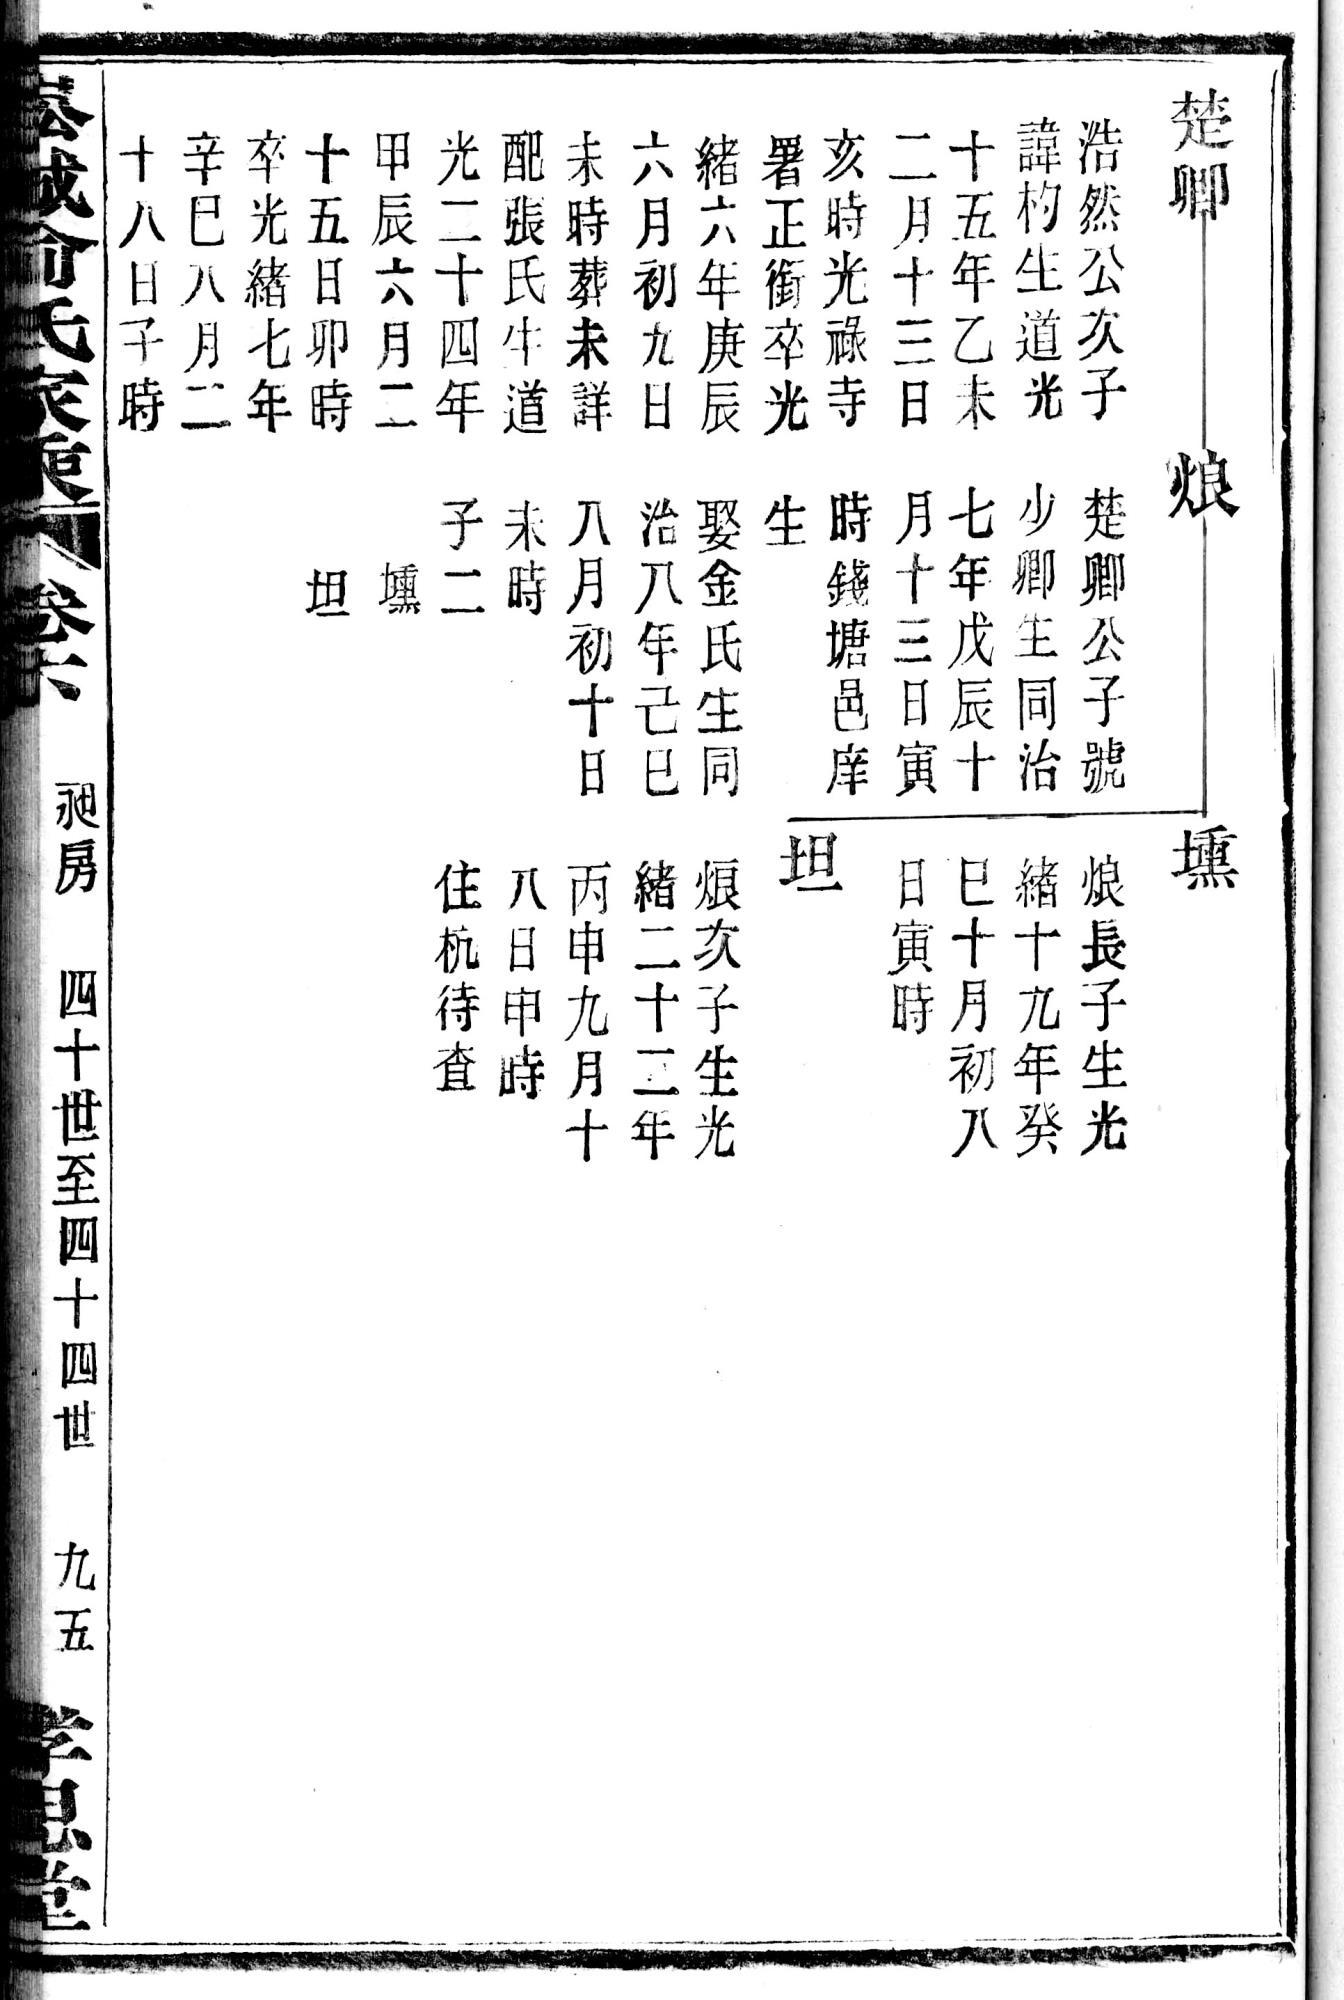 楚卿
浩然公次子
諱杓生道光
十五年乙未
二月十三日
亥時光祿寺
署正銜卒光
緒六年庚辰
六月初九日
未時葬未詳
配張氏生道
光二十四年
甲辰六月二
十五日卯時
卒光緒七年
辛巳八月二
十八日子時
烺
楚卿公子號
少卿生同治
七年戊辰十
月十三日寅
時錢塘邑庠
生
娶金氏生同
治八年己巳
八月初十日
未時
子二
壎
坦
壎
烺長子生光
緒十九年癸
巳十月初八
日寅時
坦
烺次子生光
緒二十二年
丙申九月十
八日申時
住杭待查
俞氏家乘
卷六
昶房
四十世至四十四世
九五
孝思堂